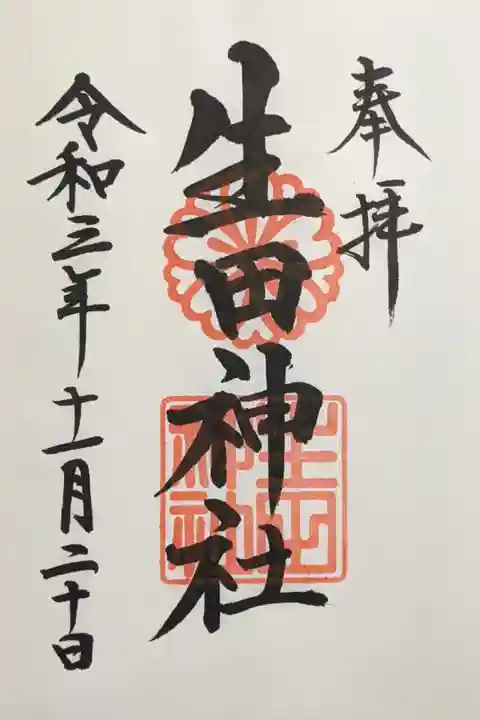 奉拝
生田神社
生田神社
令和三年十一月二十日